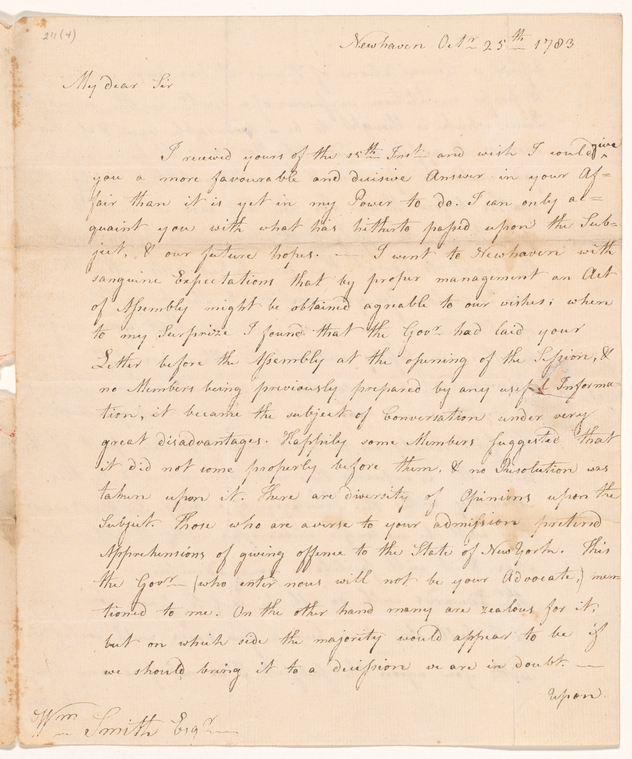 211(4)
Newhaven Octr. 25th 1783
My dear Sir
I received yours of the 15th Inst. and wish I could give
you a more favourable and decisive Answer in your Af=
fair than it is yet in my Power to do. I can only ac=
quaint you with what has hitherto passed upon the Sub-
ject, & our future hopes. — I went to Newhaven with
sanguine Expectations that by proper management an Act
of Assembly might be obtained agreable to our wishes; when
to my Surprize I found that the Govr. had laid your
Letter before the Assembly at the opening of the Session, &
no Members being previously prepared by any useful Informa-
tion, it became the subject of Conversation under very
great disadvantages. Happily some Members suggested that
it did not come properly before them, & no Resolution was
taken upon it. There are diversity of Opinions upon the
Subject. Those who are averse to your admission pretend
Apprehensions of giving offence to the State of New York. This
the Govr. (who entre nous will not be your Advocate,) men
tioned to me. On the other hand many are zealous for it;
but on which side the majority would appear to be if
we should bring it to a decission we are in doubt. —
upon
Wm Smith Esqr.